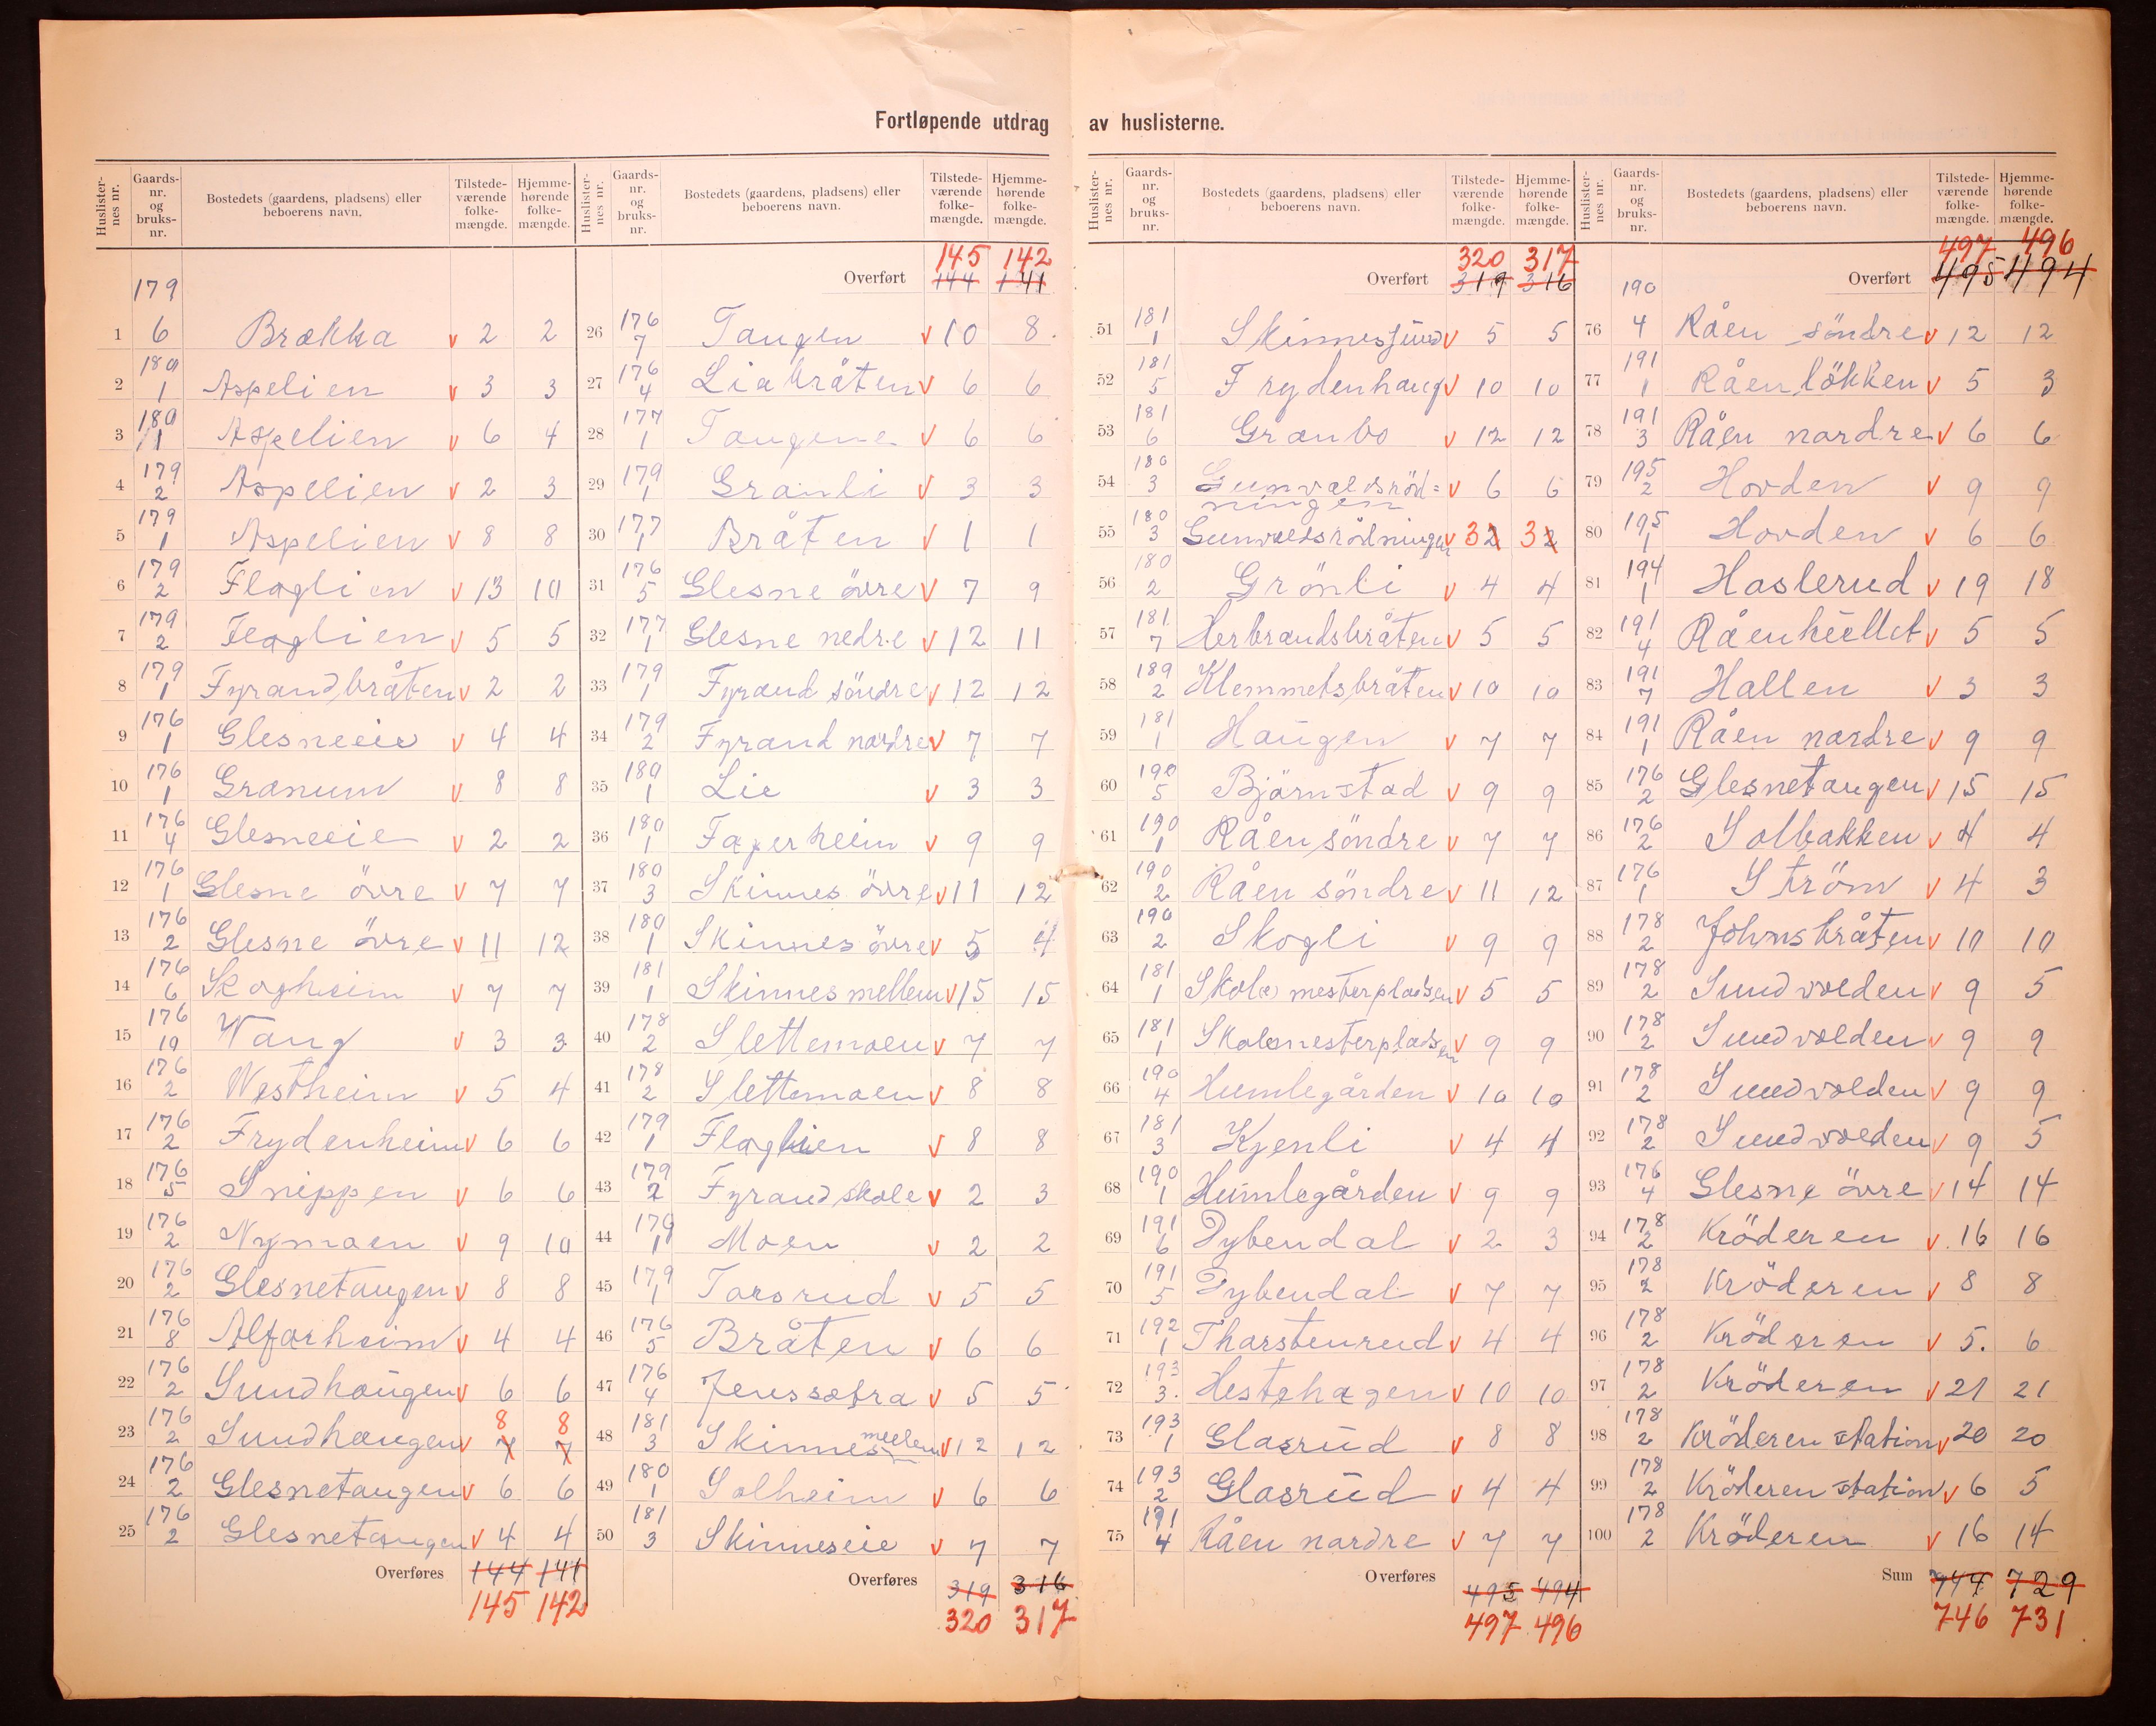 Fortløpende utdrag av huslisterne.
Huslisternes nr. Gaards-nr. og bruks-nr. Bostedets (gaardens, pladsens) eller beboerens navn. Tilstedeværende folkemængde. Hjemmehørende folkemængde.
1 179/6 Brækka v 2 2
2 180/1 Aspelien v 3 3
3 180/1 Aspelien v 6 4
4 179/2 Aspelien v 2 3
5 179/1 Aspelien v 8 8
6 179/2 Flaglien v 13 10
7 179/2 Flaglien v 5 5
8 179/1 Fyrandbråten v 2 2
9 176/1 Glesneeie v 4 4
10 176/1 Granum v 8 8
11 176/4 Glesneeie v 2 2
12 176/1 Glesne övre v 7 7
13 176/2 Glesne övre v 11 12
14 176/6 Skogheim v 7 7
15 176/10 Wang v 3 3
16 176/2 Westheim v 5 4
17 176/2 Frydenheim v 6 6
18 176/5 Snippen v 6 6
19 176/2 Nymoen v 9 10
20 176/2 Glesnetangen v 8 8
21 176/8 Alfarheim v 4 4
22 176/2 Sundhaugen v 6 6
23 176/2 Sundhaugen v 7 8 7 8
24 176/2 Glesnetangen v 6 6
25 176/2 Glesnetangen v 4 4
Overføres 144 141
145 142
Huslisternes nr. Gaards-nr. og bruks-nr. Bostedets (gaardens, pladsens) eller beboerens navn. Tilstedeværende folkemængde. Hjemmehørende folkemængde.
145 142
Overført 144 141
26 176/7 Tangen v 10 8
27 176/4 Liabråten v 6 6
28 177/1 Tangene v 6 6
29 179/1 Granli v 3 3
30 177/1 Bråten v 1 1
31 176/5 Glesne övre v 7 9
32 177/1 Glesne nedre v 12 11
33 179/1 Fyrand söndre v 12 12
34 179/2 Fyrand nordre v 7 7
35 180/1 Lie v 3 3
36 180/1 Fagerheim v 9 9
37 180/3 Skinnes övre v 11 12
38 180/1 Skinnes övre v 5 4
39 181/1 Skinnes mellem v 15 15
40 178/2 Slettemoen v 7 7
41 178/2 Slettemoen v 8 8
42 179/1 Flaglien v 8 8
43 179/2 Fyrand skole v 2 3
44 179/1 Moen v 2 2
45 179/1 Torsrud v 5 5
46 176/5 Bråten v 6 6
47 176/4 Jenssætra v 5 5
48 181/3 Skinnes mellem v 12 12
49 180/1 Solheim v 6 6
50 181/3 Skinneseie v 7 7
Overføres 319 316
320 317
Huslisternes nr. Gaards-nr. og bruks-nr. Bostedets (gaardens, pladsens) eller beboerens navn. Tilstedeværende folkemængde. Hjemmehørende folkemængde.
320 317
Overført 319 316
51 181/1 Skinnessund v 5 5
52 181/5 Frydenhaug v 10 10
53 181/6 Granbo v 12 12
54 180/3 Gunvaldsröd=
ningen v 6 6
55 180/3 Gunvaldsrödningen v 2 3 2 3
56 180/2 Grönli v 4 4
57 181/7 Herbrandsbråten v 5 5
58 189/2 Klemmetsbråten v 10 10
59 181/1 Haugen v 7 7
60 190/5 Björnstad v 9 9
61 190/1 Råen söndre v 7 7
62 190/2 Råen söndre v 11 12
63 190/2 Skogli v 9 9
64 181/1 Skolemesterpladsen v 5 5
65 181/1 Skolemesterpladsen v 9 9
66 190/4 Humlegården v 10 10
67 181/3 Kjenli v 4 4
68 190/1 Humlegården v 9 9
69 191/6 Dybendal v 2 3
70 191/5 Dybendal v 7 7
71 192/1 Thorstenrud v 4 4
72 193/3 Hestehagen v 10 10
73 193/1 Glasrud v 8 8
74 193/2 Glasrud v 4 4
75 191/4 Råen nordre v 7 7
Overføres 495 494
497 496
Huslisternes nr. Gaards-nr. og bruks-nr. Bostedets (gaardens, pladsens) eller beboerens navn. Tilstedeværende folkemængde. Hjemmehørende folkemængde.
497 496
Overført 495 494
76 190/4 Råen söndre v 12 12
77 191/1 Råenlökken v 5 3
78 191/3 Råen nordre v 6 6
79 195/2 Hovden v 9 9
80 195/1 Hovden v 6 6
81 194/1 Haslerud v 19 18
82 191/4 Råenhullet v 5 5
83 191/7 Hallen v 3 3
84 191/1 Råen nordre v 9 9
85 176/2 Glesnetangen v 15 15
86 176/2 Solbakken v 4 4
87 176/1 Ström v 4 3
88 178/2 Johnsbråten v 10 10
89 178/2 Sundvolden v 9 5
90 178/2 Sundvolden v 9 9
91 178/2 Sundvolden v 9 9
92 178/2 Sundvolden v 9 5
93 176/4 Glesne övre v 14 14
94 178/2 Kröderen v 16 16
95 178/2 Kröderen v 8 8
96 178/2 Kröderen v 5. 6
97 178/2 Kröderen v 21 21
98 178/2 Kröderen station v 20 20
99 178/2 Kröderen station v 6 5
100 178/2 Kröderen v 16 14
Sum 744 729
746 731